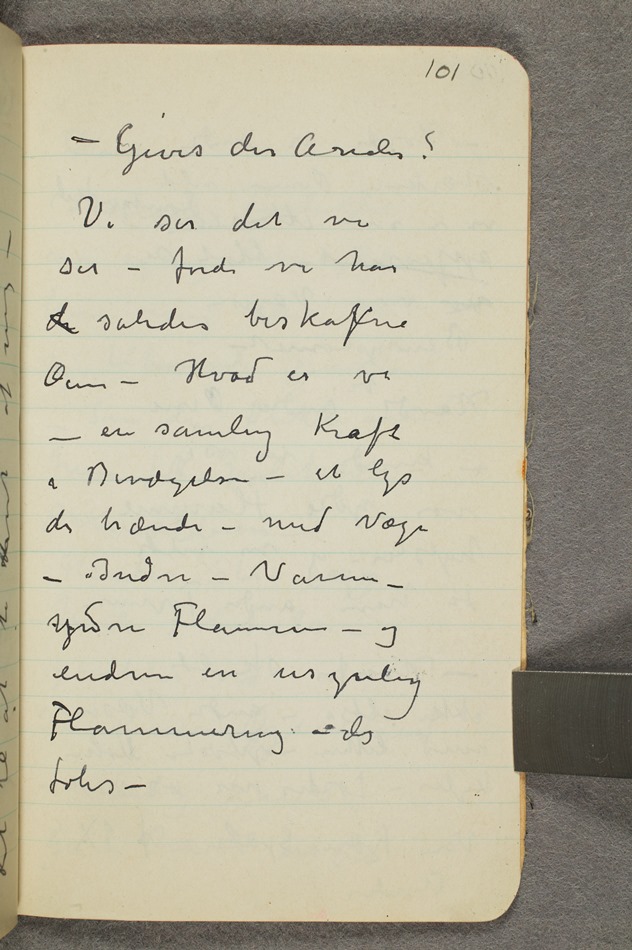 101
– Gives der Aander?
Vi ser det vi
ser – fordi vi har
saledes beskafne
Øine – Hvad er vi
– en samling Kraft
i Bevægelse – et lys
der brænder – med Væge
– Indre – Varme –
ydre Flamme – og
endnu en usynlig
Flammering – der
føles –